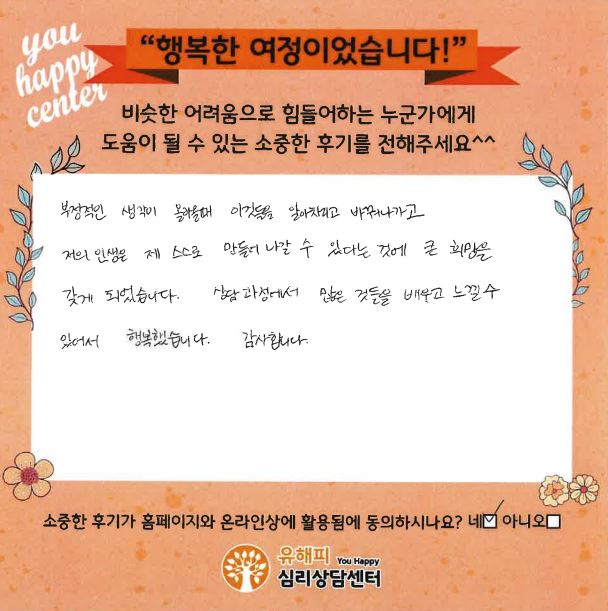 you
happy
center
“행복한 여정이었습니다!”
비슷한 어려움으로 힘들어하는 누군가에게
도움이 될 수 있는 소중한 후기를 전해주세요^^
부정적인 생각이 몰려올때 이것들을 알아차리고 바꿔나가고
저의 인생은 제 스스로 만들어 나갈 수 있다는 것에 큰 희망을
갖게 되었습니다. 상담 과정에서 많은 것들을 배우고 느낄 수
있어서 행복했습니다. 감사합니다.
소중한 후기가 홈페이지와 온라인상에 활용됨에 동의하시나요? 네☑ 아니오☐
유해피 You Happy
심리상담센터